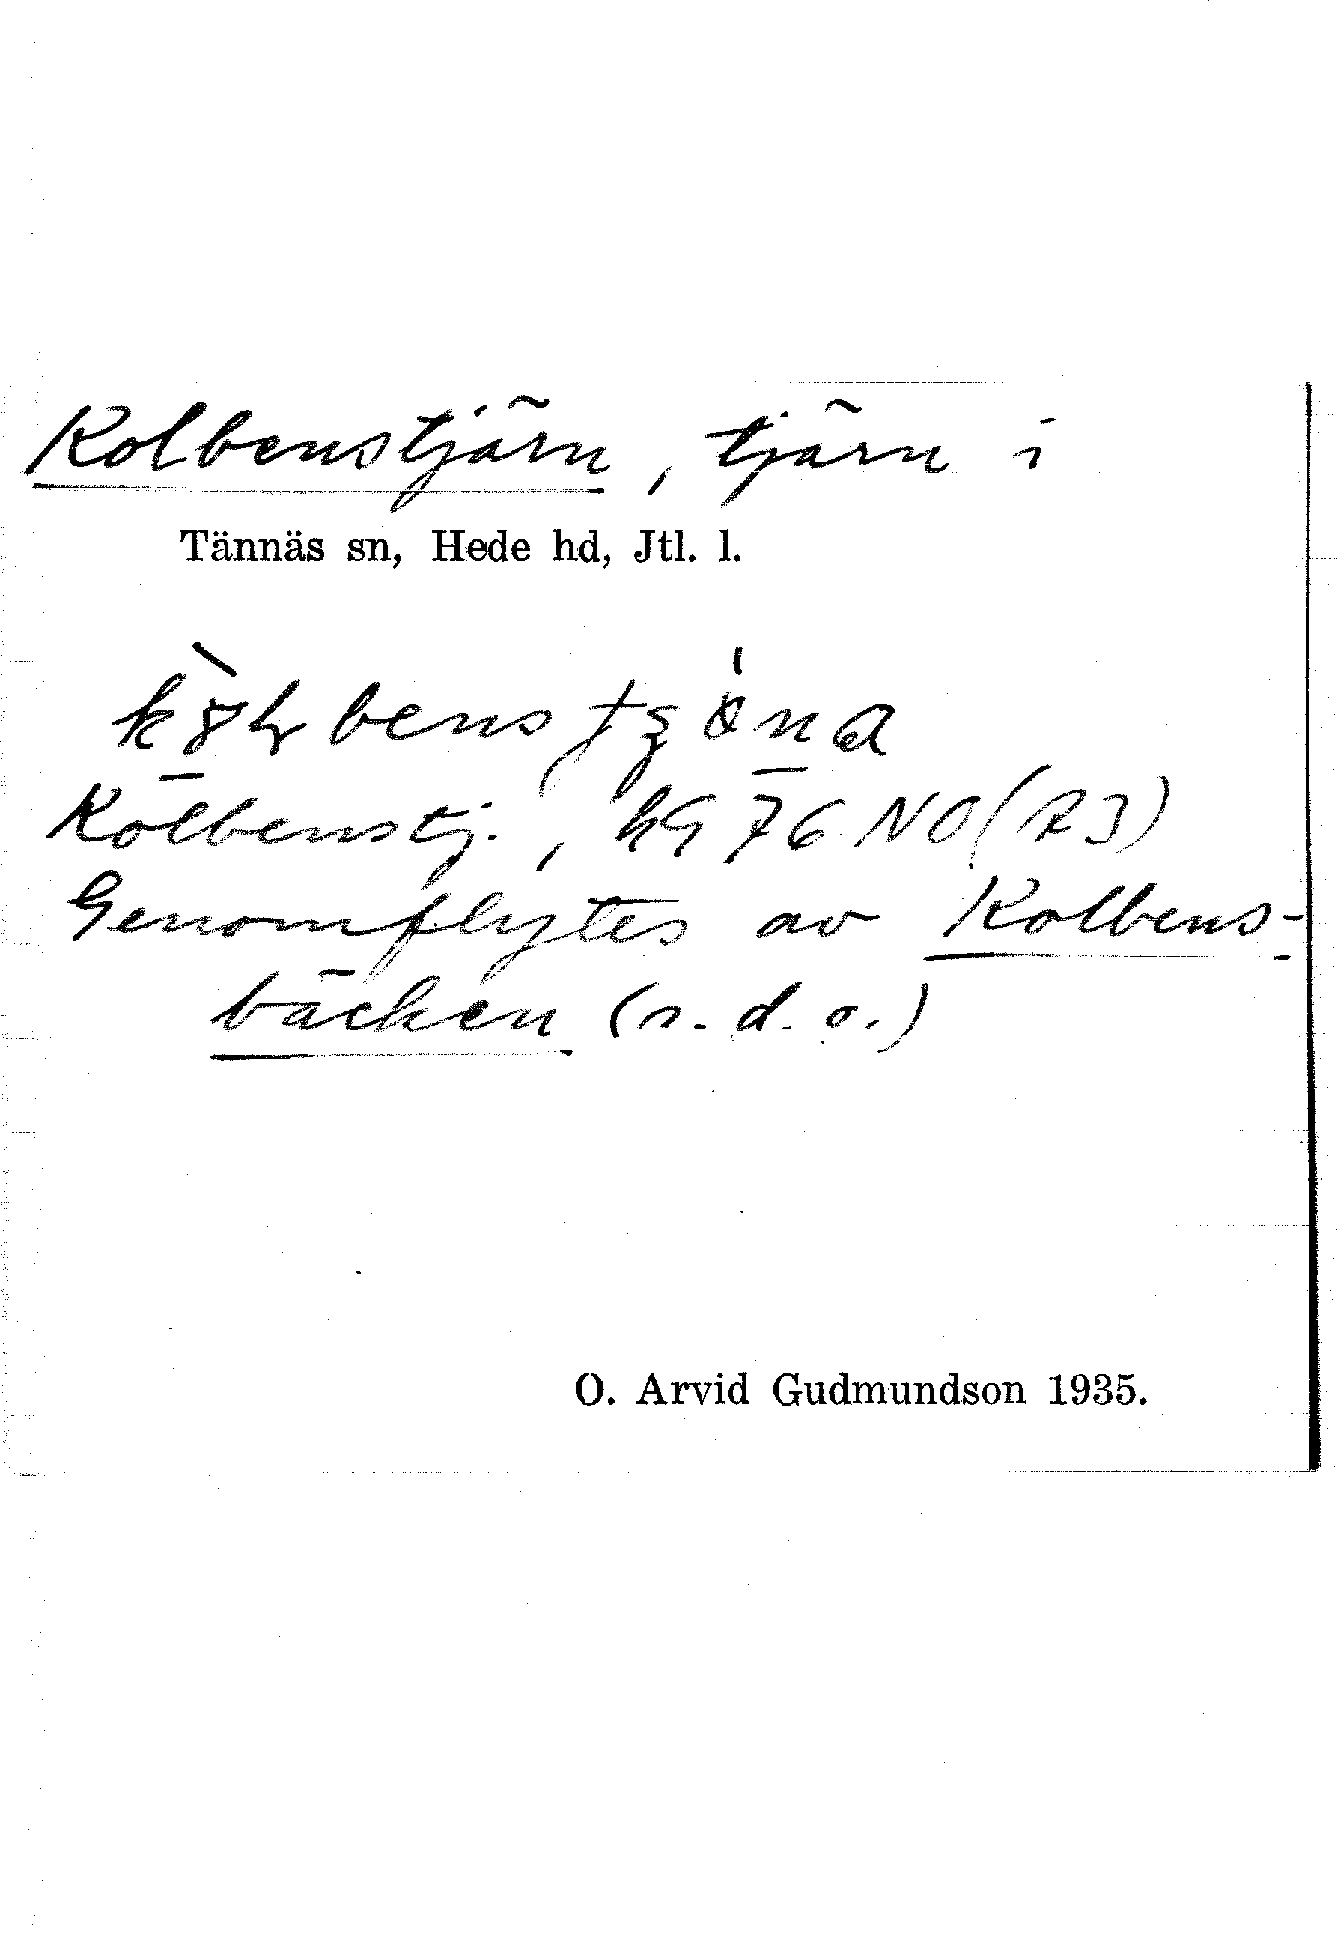 Kolbenstjärn, tjärn i
Tännäs sn, Hede hd, Jtl. l.
Kolbenstj., kG 76 NO (A3)
Genomflytes av Kolbens-
bäcken (s. d. o.)
O. Arvid Gudmundson 1935.